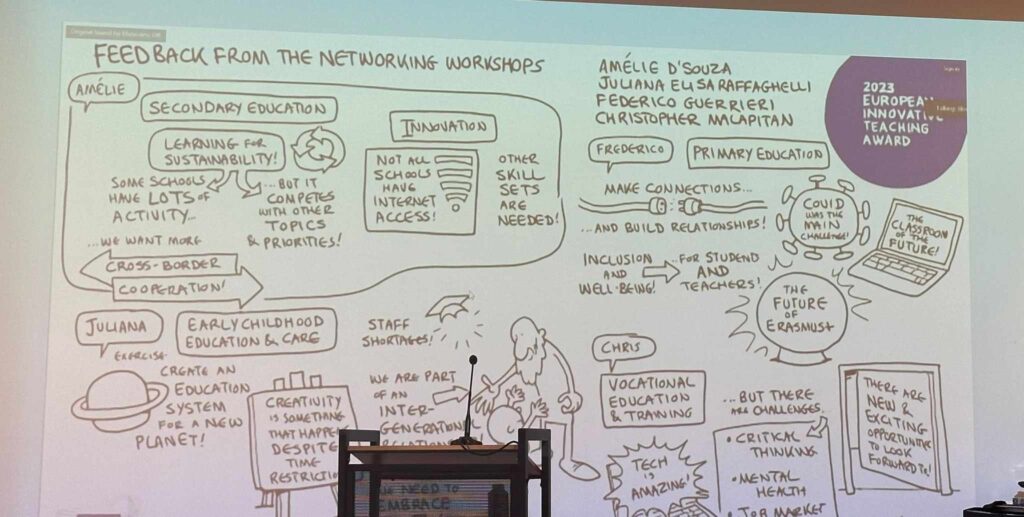 FEEDBACK FROM THE NETWORKING WORKSHOPS
AMÉLIE
SECONDARY EDUCATION
LEARNING FOR
SUSTAINABILITY!
SOME SCHOOLS
HAVE LOTS OF
ACTIVITY...
...BUT IT
COMPETES
WITH OTHER
TOPICS
& PRIORITIES!
...WE WANT MORE
CROSS-BORDER
COOPERATION!
INNOVATION
NOT ALL
SCHOOLS
HAVE
INTERNET
ACCESS!
OTHER
SKILL
SETS
ARE
NEEDED!
AMÉLIE D'SOUZA
JULIANA ELISA RAFFAGHELLI
FEDERICO GUERRIERI
CHRISTOPHER MALAPITAN
2023
EUROPEAN
INNOVATIVE
TEACHING
AWARD
FREDERICO
PRIMARY EDUCATION
MAKE CONNECTIONS...
...AND BUILD RELATIONSHIPS!
COVID
WAS THE
MAIN
CHALLENGE!
THE
CLASSROOM
OF THE
FUTURE!
INCLUSION
AND
WELL-BEING!
...FOR STUDEND
AND
TEACHERS!
THE
FUTURE
OF
ERASMUS+
JULIANA
EARLY CHILDHOOD
EDUCATION & CARE
EXERCISE:
CREATE AN
EDUCATION
SYSTEM
FOR A NEW
PLANET!
CREATIVITY
IS SOMETHING
THAT HAPPE
DESPITE
TIME
RESTRICTIO
STAFF
SHORTAGES!
WE ARE PART
OF AN
INTER-
GENERATION
WE NEED TO
EMBRACE
CHRIS
VOCATIONAL
EDUCATION
& TRAINING
TECH
IS
AMAZING!
...BUT THERE
ARE CHALLENGES...
• CRITICAL
THINKING
• MENTAL
HEALTH
• JOB MARKET
THERE ARE
NEW &
EXCITING
OPPORTUNITIE
TO LOOK
FORWARD TO!